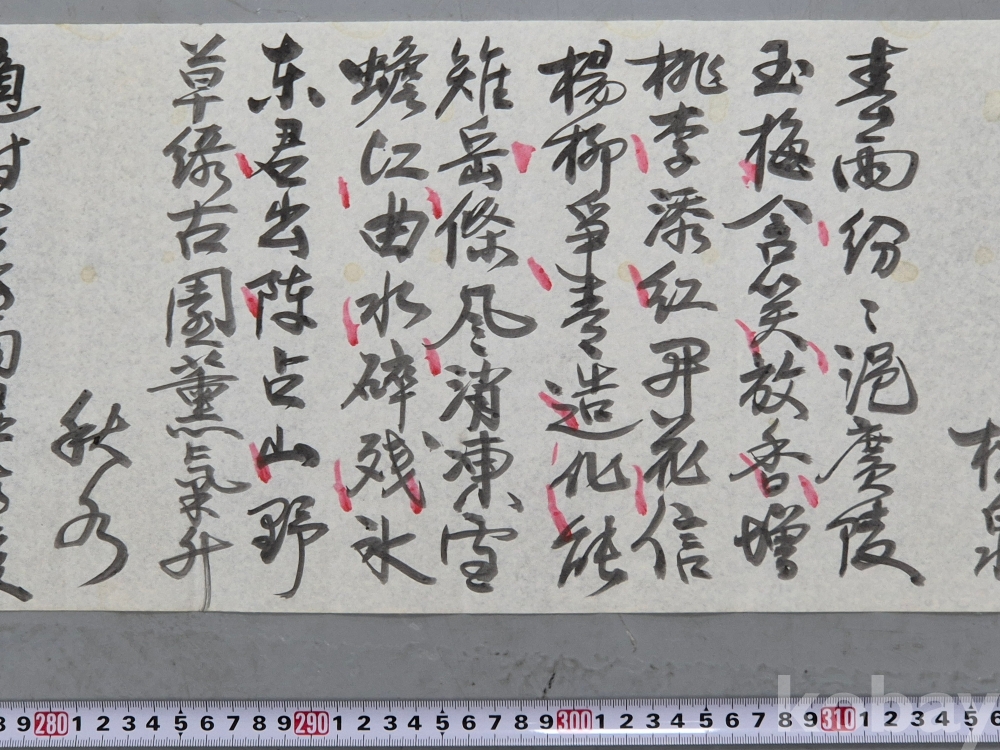 春雨紛〻浥廣陵
玉梅含笑放香增
桃李添紅開花信
楊柳爭青造化能
雉岳條风消凍雪
蟾江曲水碎残氷
东君出陣占山野
草绿古園薰氣升
秋水
8 9 280 1 2 3 4 5 6 7 8 9 290 1 2 3 4 5 6 7 8 9 300 1 2 3 4 5 6 7 8 9 310 1 2 3 4 5 6
kobay